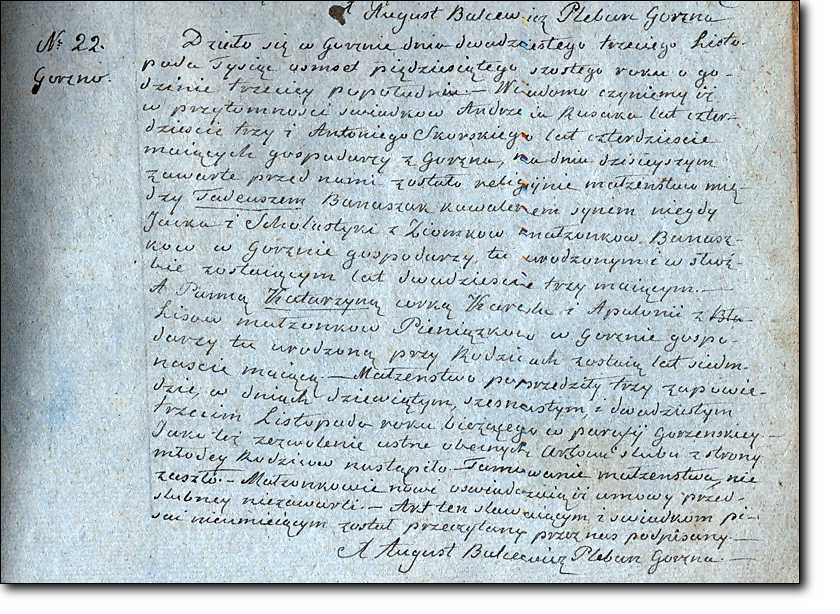 X August Balcewicz Pleban Gorzna
№ 22.
Gorzno.
Działo się w Gorznie dnia dwudziestego trzeciego Listo-
pada Tysiąc osmset piędziesiątego szostego roku o go-
dzinie trzeciey popołudniu. — Wiadomo czyniemy iż
w przytomności swiadkow Andrzeia Kusaka lat czter-
dzieście trzy i Antoniego Skorskiego lat czterdzieście
maiących gospodarzy z Gorzna, na dniu dzisieyszym
zawarte przed nami zostało religijnie małzenstwo mię-
dzy Tadeuszem Banaszak kawalerem synem niegdy
Jacka i Scholastyki z Ziomkow małzonkow Banasz-
kow w Gorznie gospodarzy, tu urodzonym i w służ-
bie zostaiącym lat dwadzieście trzy maiącym. —
A Panną Katarzyną corką Karola i Apolonii z Bla
Lisow małzonkow Pieniązkow w Gorznie gospo-
darzy tu urodzoną przy Rodzicach zostaią lat siedm-
nascie maiącą — Małzenstwo poprzedziły trzy zapowie-
dzie, w dniach dziewiątym, szesnastym i dwudziestym
trzecim Listopada roku bieżącego w parafij Gorzenskiey —
Jako też zezwolenie ustne obecnych Aktowi slubu z strony
młodey Rodzicow nastąpiło — Tamowanie małzenstwa, nie
zaszło. — Małzonkowie nowi oswiadczaią iż umowy przed-
slubney niezawarli. — Akt ten stawaiącym i swiadkom pi-
sać nieumieiącym został przeczytany przez nas podpisany —
X August Balcewicz Pleban Gorzna —